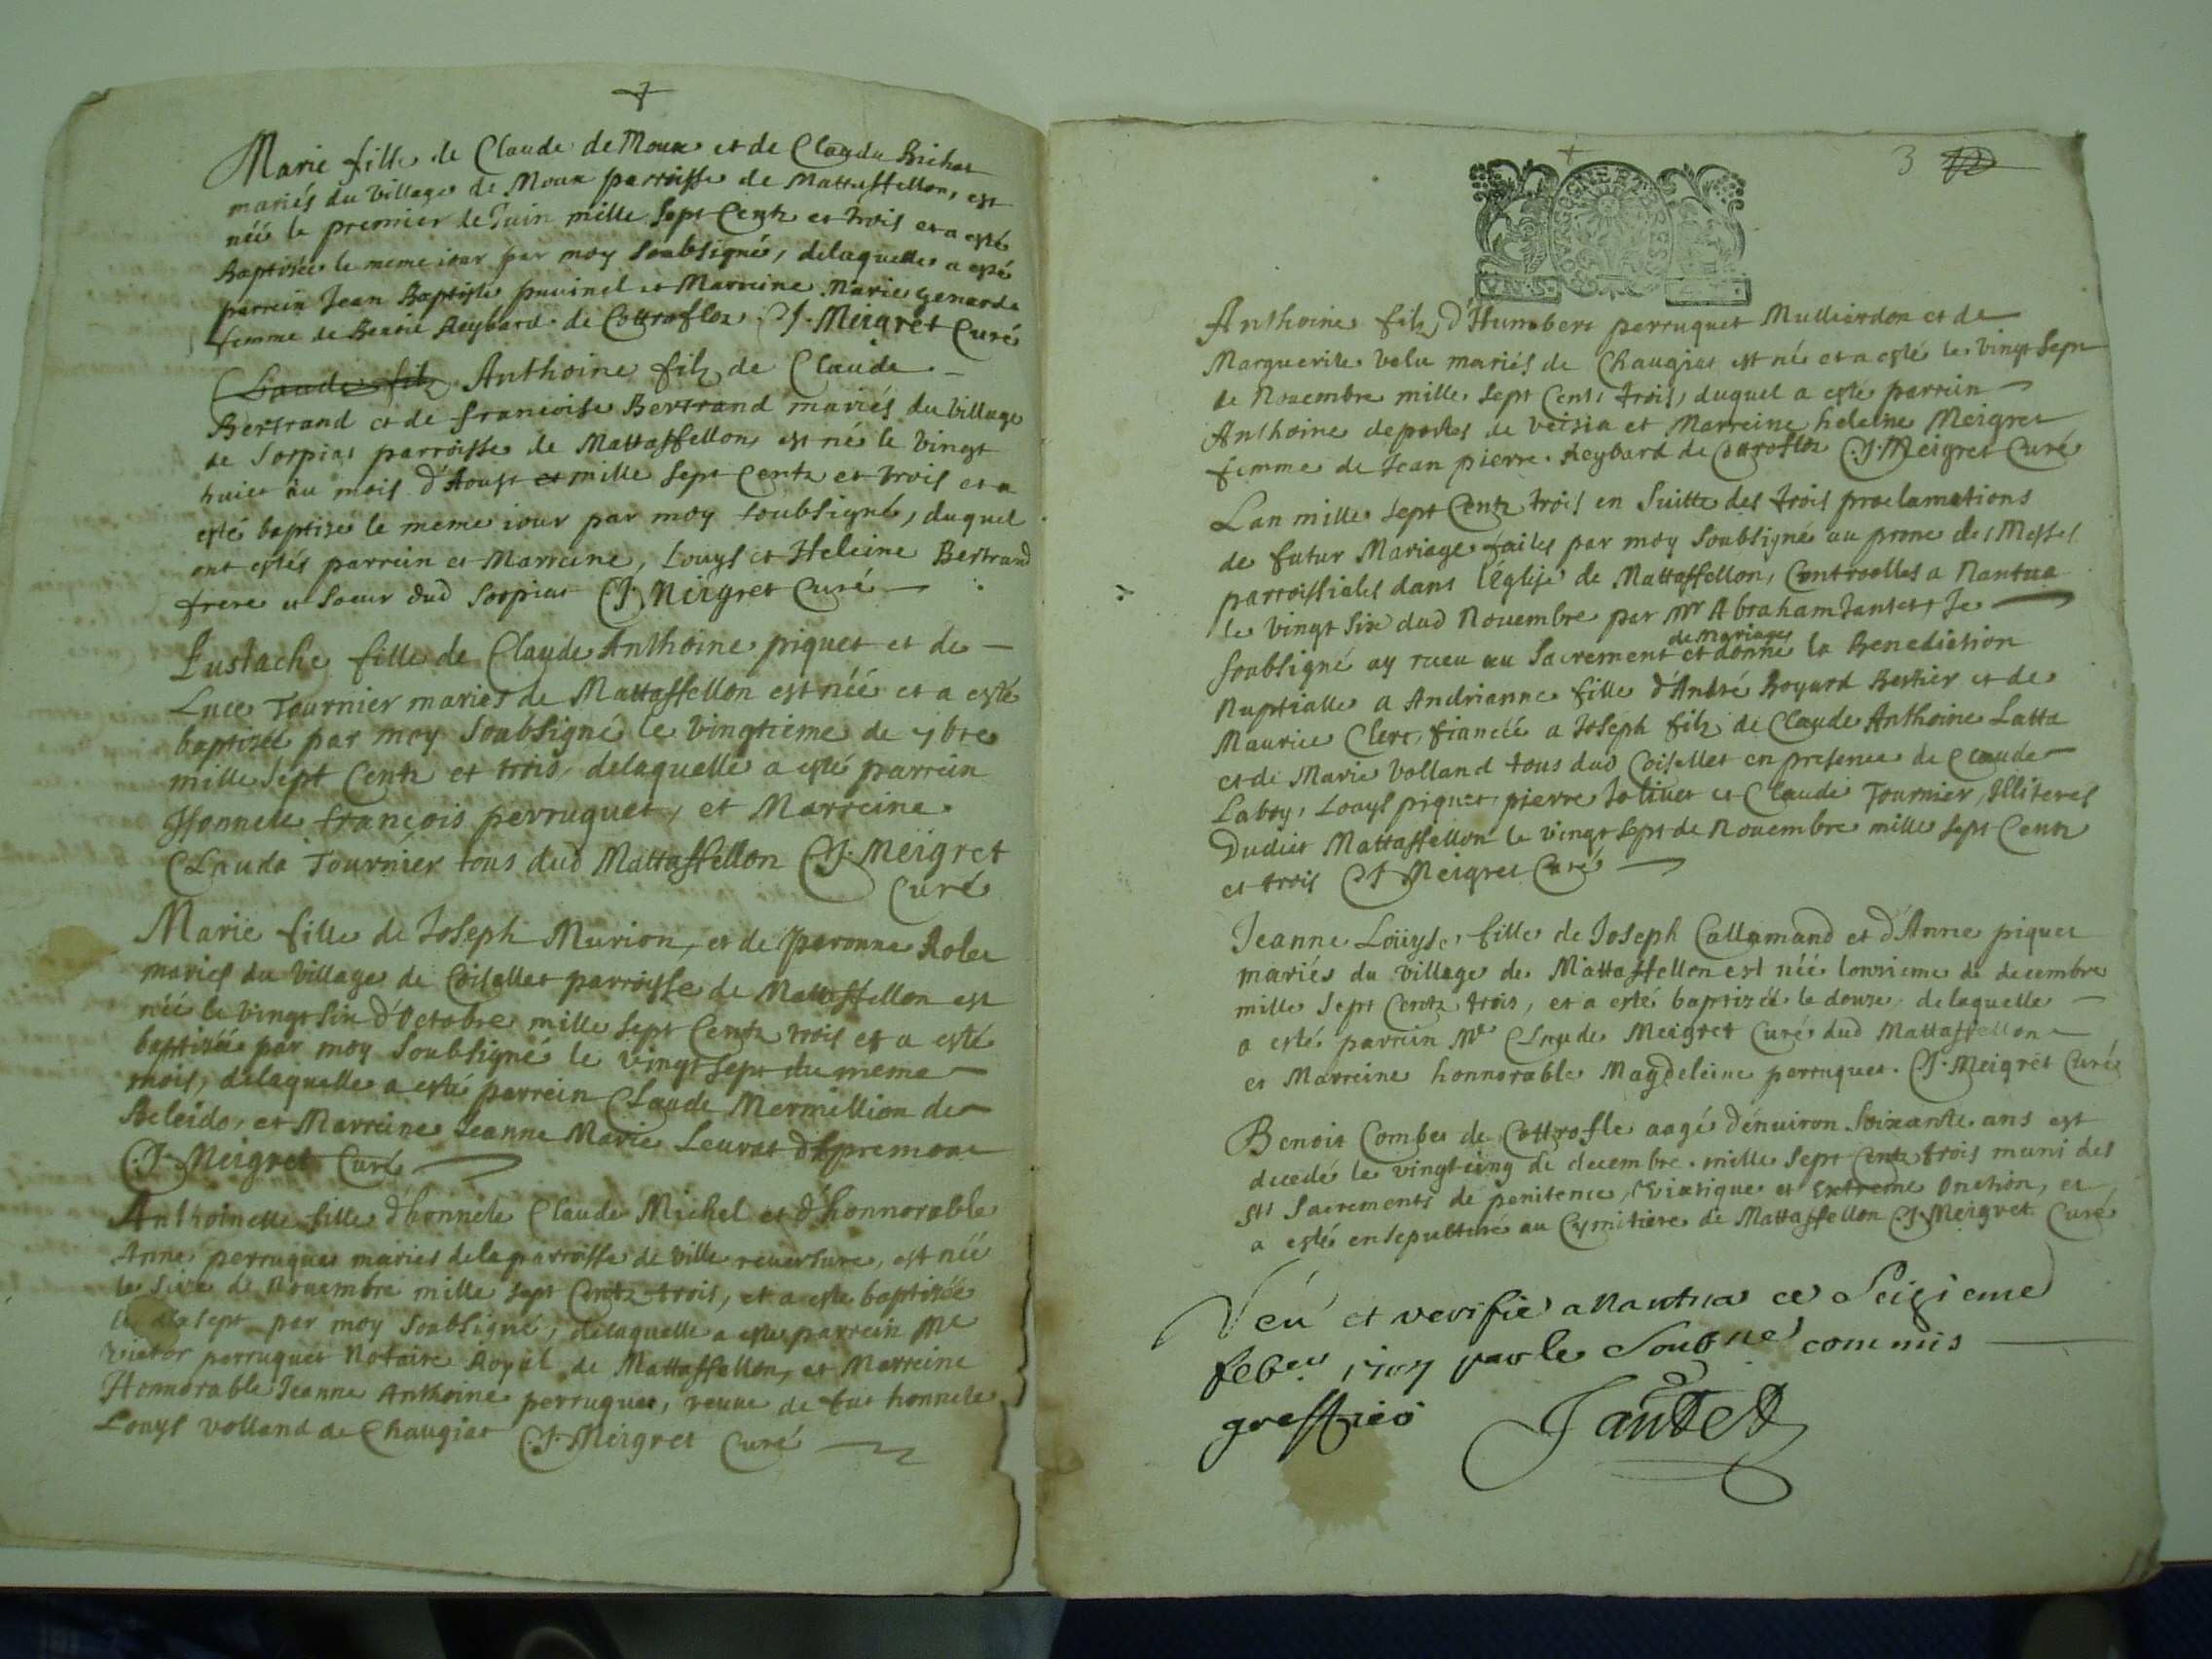 Marie fille de Claude de Moux et de Clauda Bichat
mariés du village de Moux parroisse de Mattaffellon, est
néé le premier de Juin mille sept Centz et trois et a esté
Baptisée le meme iour par moy soubsigné, delaquelle a esté
parrein Jean Baptiste et Marreine Marie genarde
femme de Benoit Reybard de Cottrofloz C.J. Meigret Curé
Claude filz Anthoine filz de Claude
Bertrand et de francoise Bertrand mariés du village
de Sorpiat parroisse de Mattaffellon, est né le vingt
huict au mois d'Aoust et mille sept Centz et trois et a
esté baptizé le meme iour par moy soubsigné, duquel
ont estés parrein et Marreine, Louys et Heleine Bertrand
frere et soeur dud Sorpiat C.J. Meigret Curé
Eustache fille de Claude Anthoine piquet et de
Luce Tournier mariés de Mattaffellon est néé et a esté
baptizéé par moy soubsigné le vingtieme de 7bre
mille sept Centz et trois, delaquelle a esté parrein
Honnete françois perruquet, et Marreine
Clauda Tournier tous dud Mattaffellon C.J. Meigret
Curé
Marie fille de Joseph Murion, et de peronne Rolet
mariés du village de Coisellet parroisse de Mattaffellon est
néé le vingt six d'Octobre mille sept Centz trois et a esté
baptizéé par moy soubsigné le vingt sept du meme
mois, delaquelle a esté parrein Claude Mermillion de
Beleido, et Marreine Jeanne Marie Leurat d'Apremont
C.J. Meigret Curé
Anthoinette fille d'honnete Claude Michel et d'honnorable
Anne perruquet mariés de la parroisse de ville reuersure, est néé
le size de Nouembre mille sept Centz trois, et a esté baptizéé
le dixsept par moy soubsigné, delaquelle a esté parrein Me
Victor perruquet Notaire Royal de Mattaffellon, et Marreine
Honnorable Jeanne Anthoine perruquet, veuue de feu honnete
Louys Volland de Chaugiat C.J. Meigret Curé
3
BOVRGOGNE ET BRESSE
VN.S.
Anthoine filz d'Humbert perruquet Mulliardon et de
Marguerite velu mariés de Chaugiat est né et a esté le vingt sept
de Nouembre mille sept Cents trois, duquel a esté parrein
Anthoine deportes de veisia et Marreine heleine Meigret
femme de Jean pierre Reybard de Cottrofloz C.J. Meigret Curé
Lan mille sept Centz trois en suitte des trois proclamations
de futur Mariage failes par moy soubsigné au prone des Messes
parroissiales dans l'Eglise de Mattaffellon, Controolles a Nantua
le vingt six dud Nouembre par Mr Abraham Jantet, Je
de mariage
soubsigné ay receu au Sacrement et donné la Benediction
Nuptialle a Andrianne fille d'André Boyard Bertier et de
Maurice Clerc, fiancéé a Joseph filz de Claude Anthoine Latta
et de Marie Volland tous dud Coisellet en presence de Claude
Laboy, Louys piquet, pierre Joliuet et Claude Tournier, Illiteres
Dudict Mattaffellon le vingt sept de Nouembre mille sept Centz
et trois C.J. Meigret Curé
Jeanne Loüyse fille de Joseph Callamand et d'Anne piquet
mariés du village de Mattaffellon est néé lonzieme de decembre
mille sept Centz trois, et a esté baptizéé le douze, delaquelle
a esté parrein Me Claude Meigret Curé dud Mattaffellon
et Marreine honnorable Magdeleine perruquet. C.J. Meigret Curé
Benoit Combet de Cottrofle aagé d'enuiron soixante ans est
decedé le vingt cinq de decembre mille sept Centz trois muni des
Sts Sacrements de penitence, Viatique et Extreme Onction, et
a esté ensepulturé au Cymitiere de Mattaffellon C.J. Meigret Curé
Veu et verifié a Nantua ce Seizieme
feb.er 1704 par le Soubné commis
greffier Jantet